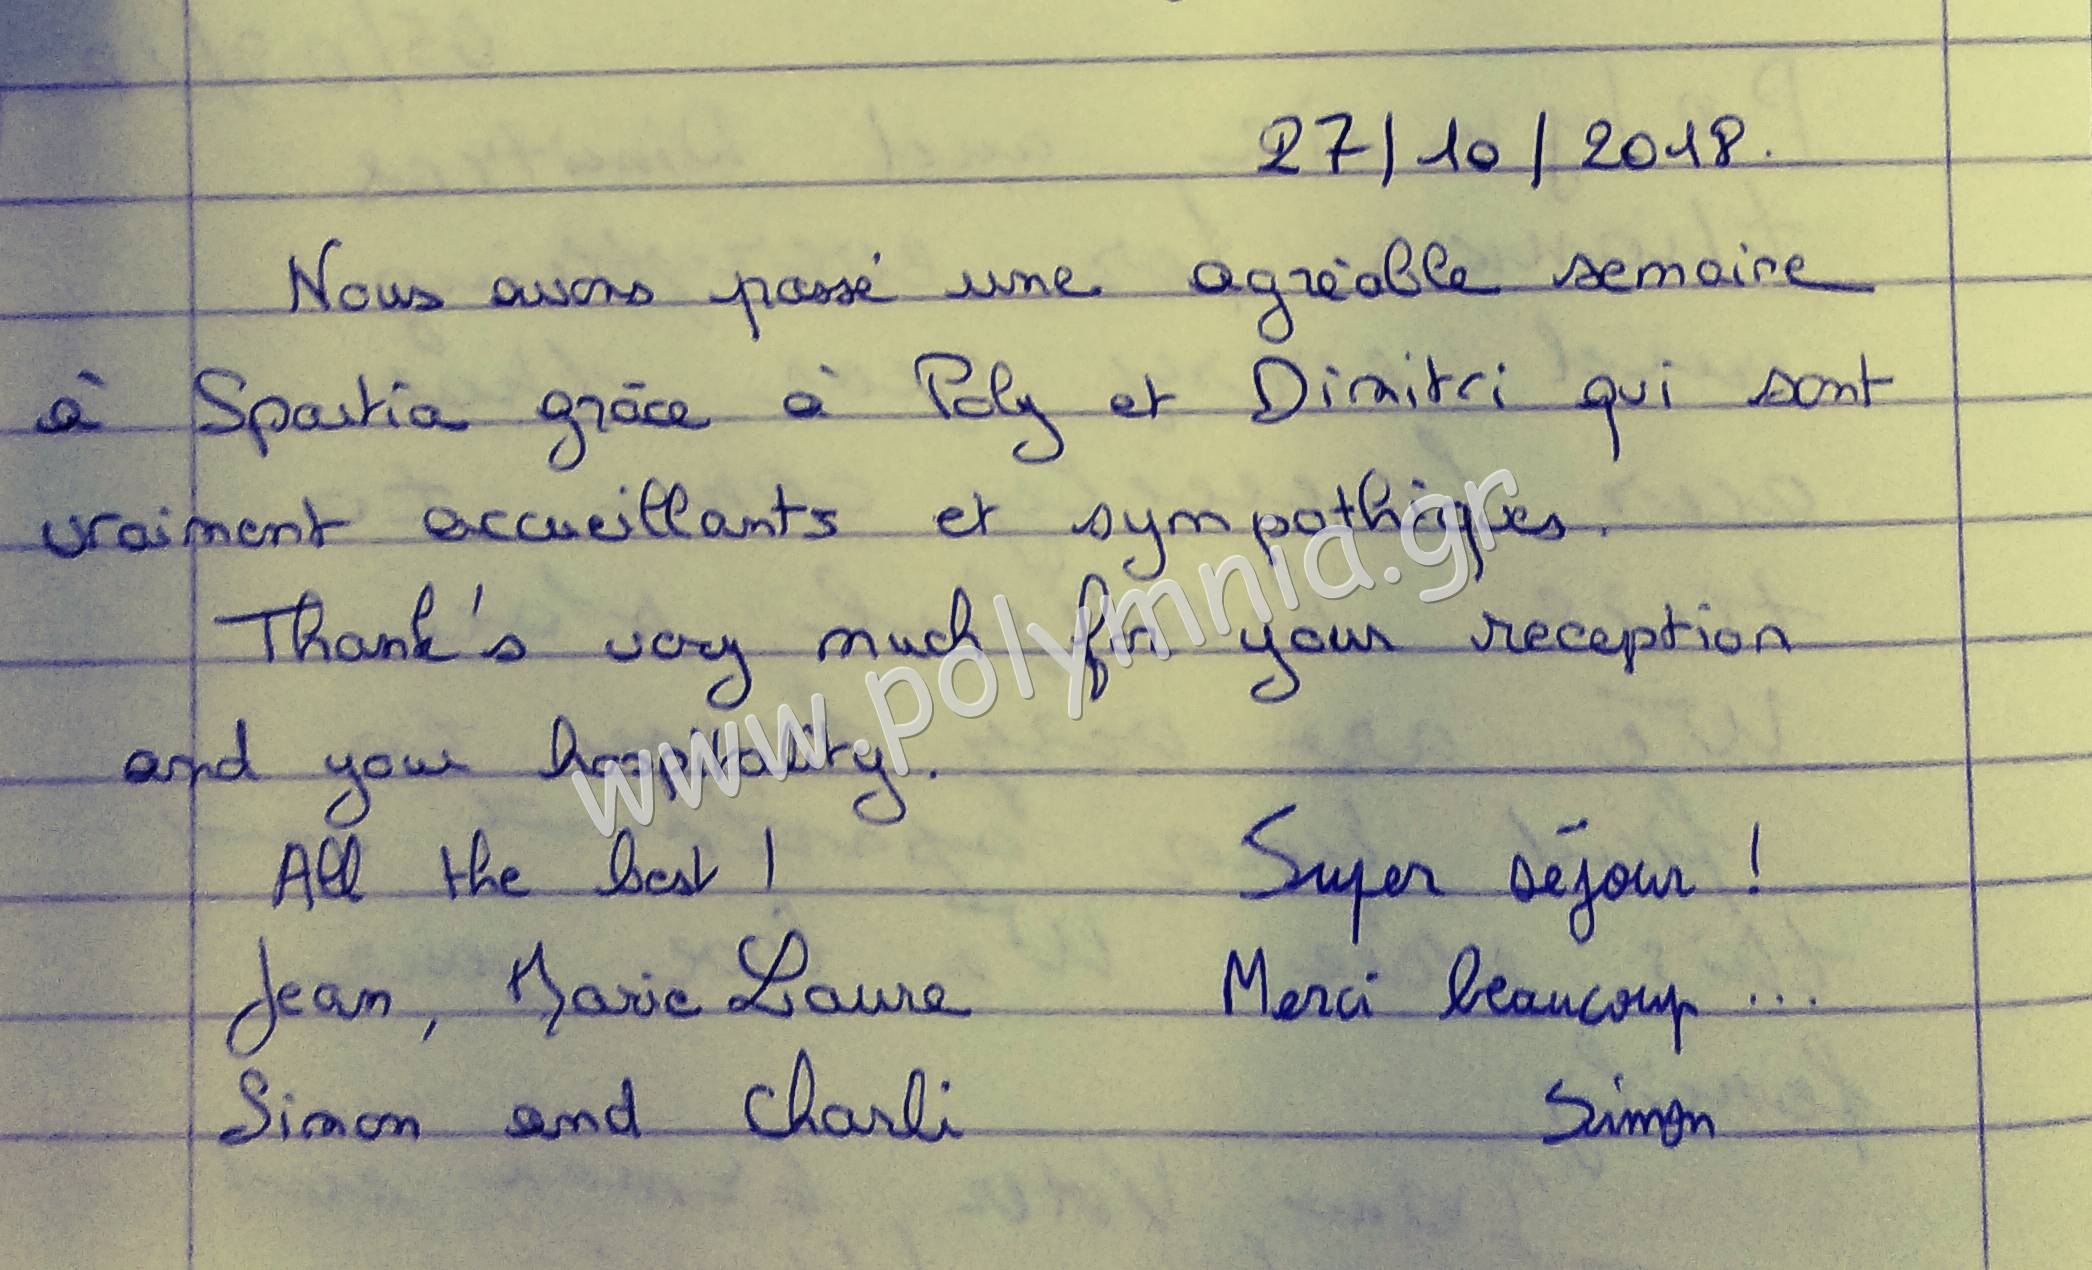 27/10/2018.
Nous avons passé une agréable semaine
à Spartia grâce à Poly et Dimitri qui sont
vraiment accueillants et sympathiques.
Thank's very much for your reception
and your hospitality.
www.polymnia.gr
All the best !
Jean, Marie Laure
Simon and Charli
Super séjour !
Merci beaucoup ...
Simon